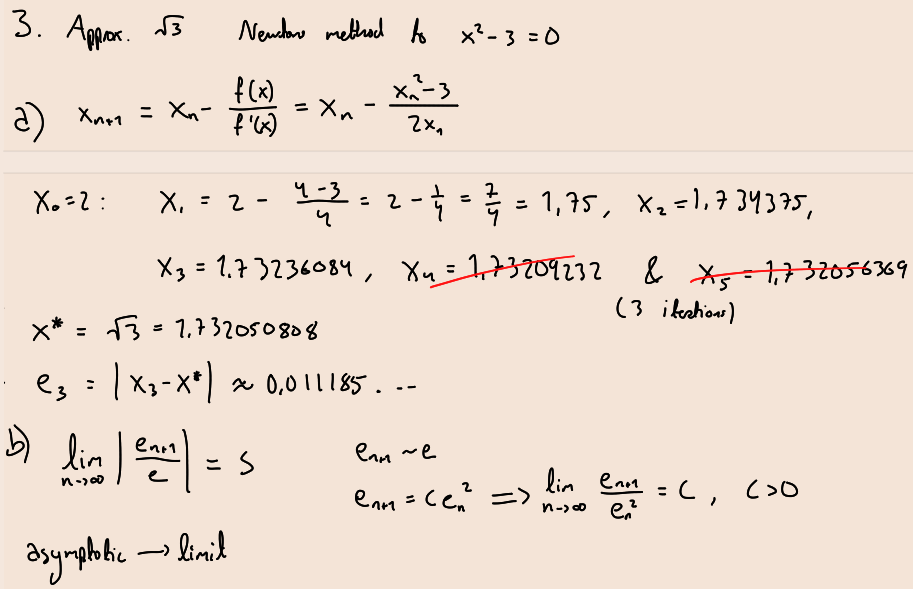 3. Approx. √3 Newton method to x² - 3 = 0
a) xₙ₊₁ = xₙ - f(x)/f'(x) = xₙ - (xₙ² - 3)/(2xₙ)
x₀ = 2 : x₁ = 2 - (4-3)/4 = 2 - 1/4 = 7/4 = 1,75, x₂ = 1.734375,
x₃ = 1.73236084, x₄ = 1,73209232 & x₅ = 1,732056369
(3 iterations)
x* = √3 = 1.732050808
e₃ = |x₃ - x*| ≈ 0,011185. ...
b) lim n→∞ |eₙ₊₁/e| = S eₙ₊₁ ~ e
eₙ₊₁ = C eₙ² => lim n→∞ eₙ₊₁/eₙ² = C, C>0
asymptotic → limit